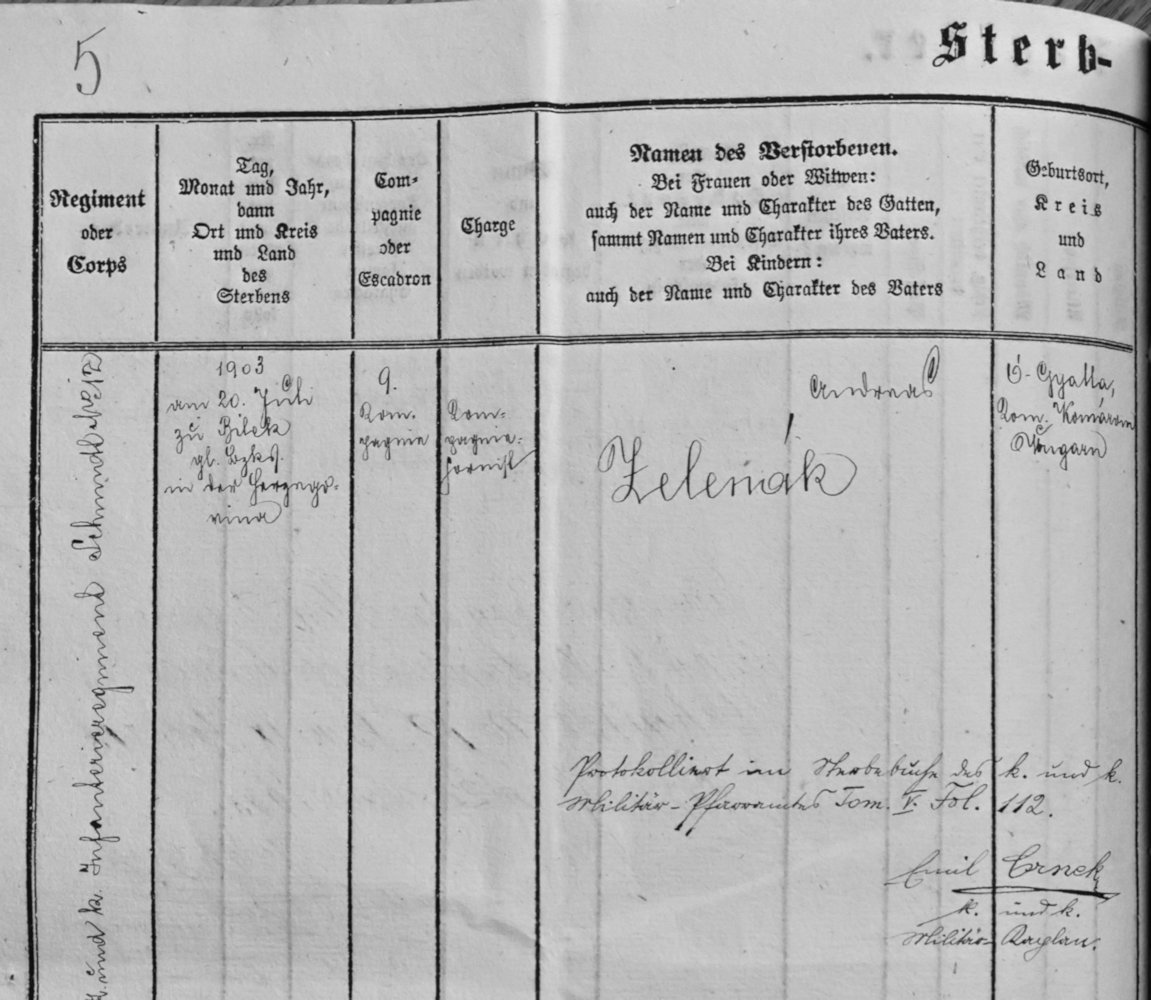 5
Sterb-
Regiment
oder
Corps
Tag,
Monat und Jahr,
dann
Ort und Kreis
und Land
des
Sterbens
Com-
pagnie
oder
Escadron
Charge
Namen des Verstorbenen.
Bei Frauen oder Witwen:
auch der Name und Charakter des Gatten,
sammt Namen und Charakter ihres Vaters.
Bei Kindern:
auch der Name und Charakter des Vaters
Geburtsort,
Kreis
und
Land
K. und k. Infanterieregiment Schmidt №
1903
am 20. Juli
zu Bilek
gl. Bzks.
in der Herzego-
vina
9.
Kom.
pagnie
Kom-
pagnie-
hornist
Andreas
Zelenıák
Ó-Gyalla,
Kom. Komárom
Ungarn
Protokolliert im Sterbebuche des k. und k.
Militär-Pfarramtes Tom. V. Fol. 112.
Emil Crnek
k. und k.
Militär-Kaplan.